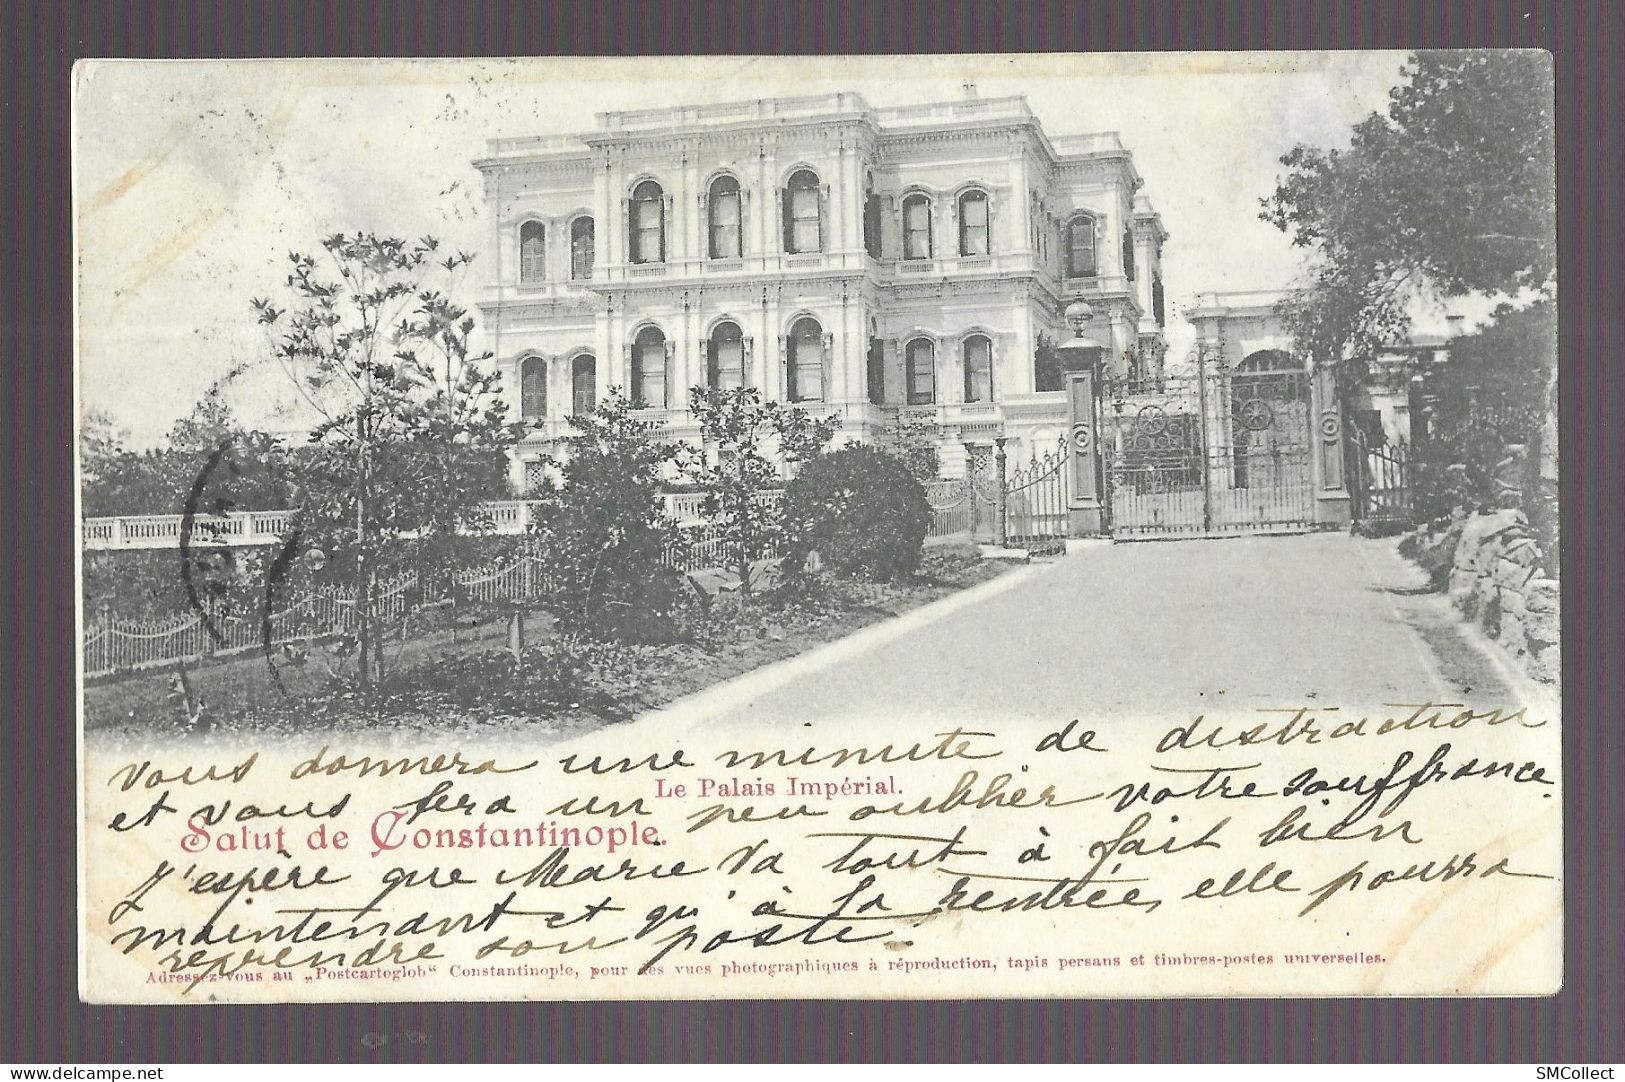 vous donnera une minute de distraction
Le Palais Impérial.
et vous fera un peu oublier votre souffrance.
Salut de Constantinople.
J'espère que Marie va tout à fait bien
maintenant et qu'à la rentrée, elle pourra
reprendre son poste.
Adressez-vous au „Postcartoglob“ Constantinople, pour des vues photographiques à réproduction, tapis persans et timbres-postes universelles.
www.delcampe.net
SMCollect